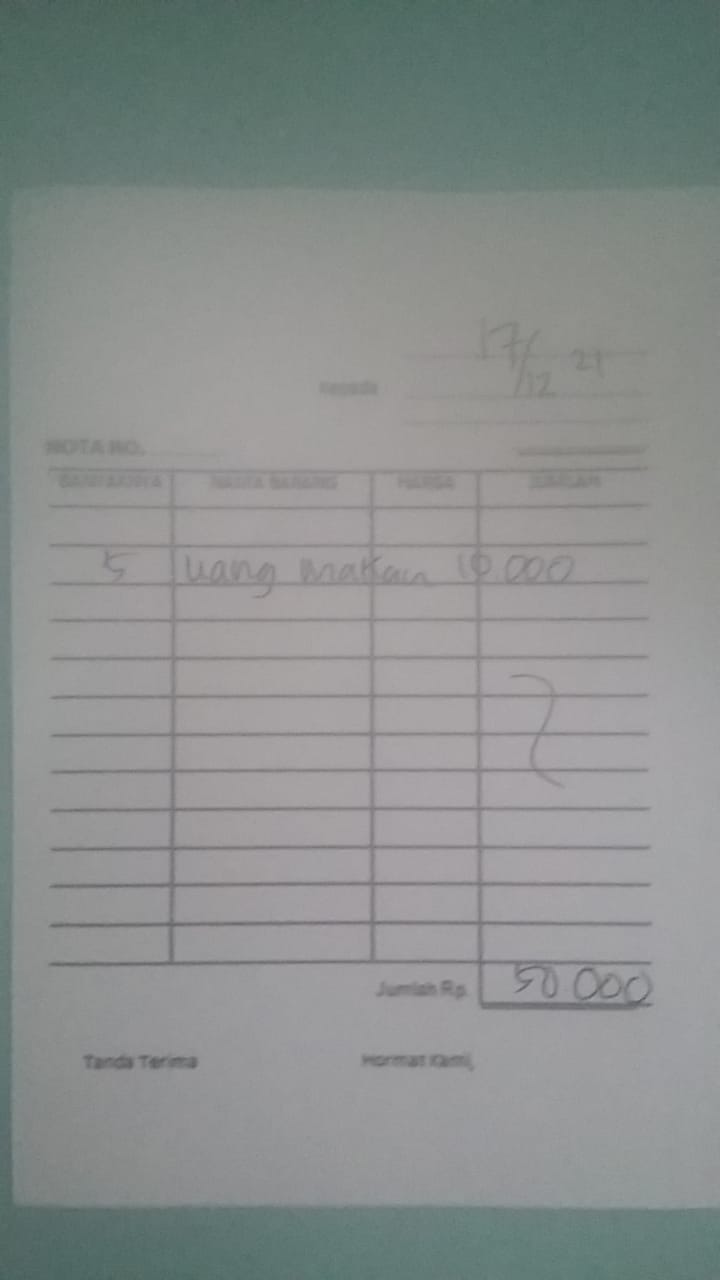 17/12 21
Kepada
NOTA NO.
BANYAKNYA NAMA BARANG HARGA JUMLAH
5 uang makan 10.000
Jumlah Rp. 50.000
Tanda Terima Hormat Kami,